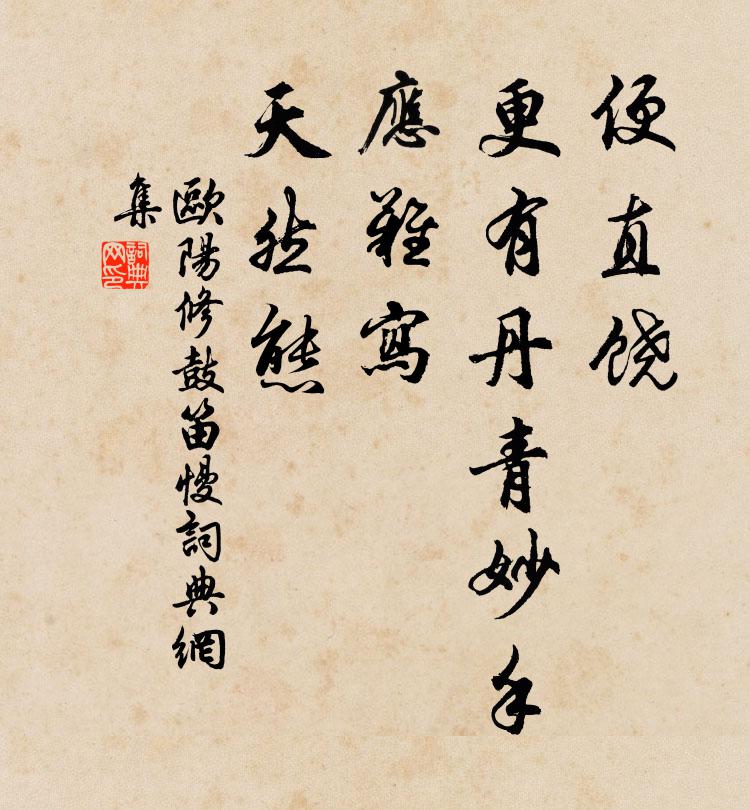 便直饶
更有丹青妙手
應難寫
天然態
歐陽修鼓笛慢詞典網
集
詞典
网印